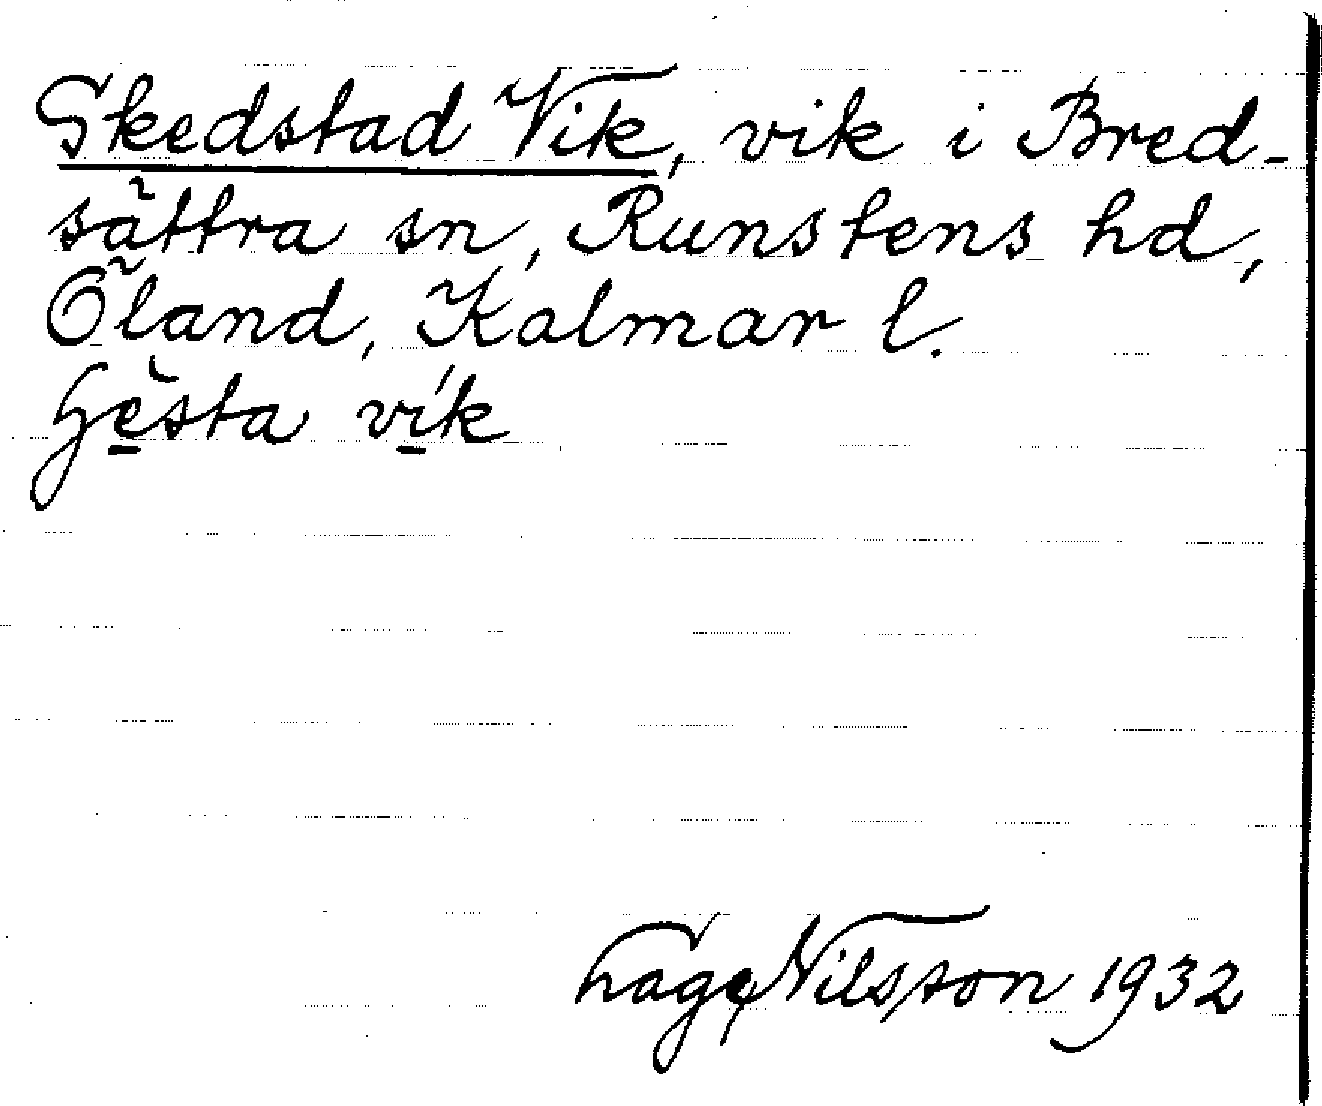 Skedstad Vik, vik i Bred-
sättra sn, Runstens hd,
Öland, Kalmar l.
vik
Nilsson 1932